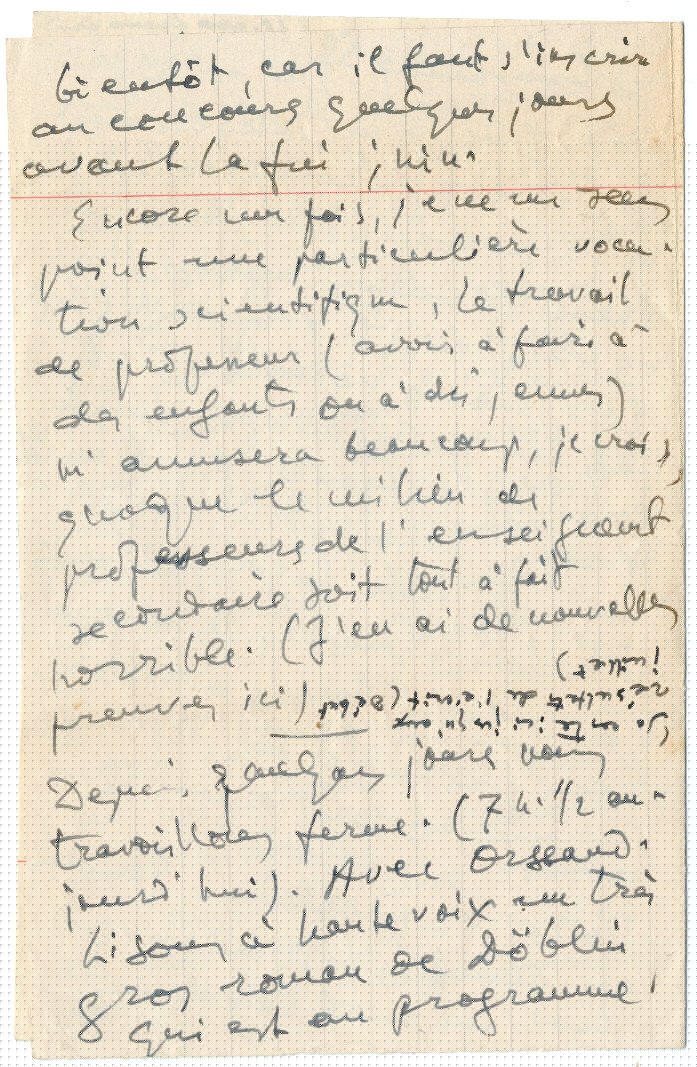 bientôt, car il faut s'inscrire
au concours quelques jours
avant la fin juin.
Encore une fois, je ne me sens
point une particulière voca-
tion scientifique, le travail
de professeur (avoir à faire à
des enfants ou à des jeunes)
m'amusera beaucoup, je crois,
quoique le milieu de
professeurs de l'enseignant
secondaire soit tout à fait
horrible. (J'en ai de nouvelles
preuves ici)
Je reste ici jusqu'aux
résultats de l'écrit (Début
juillet)
Depuis quelques jours nous
travaillons ferme. (7 h. 1/2 au-
jourd'hui). Avec
lisons à haute voix un très
gros roman de Döblin
qui est au programme,